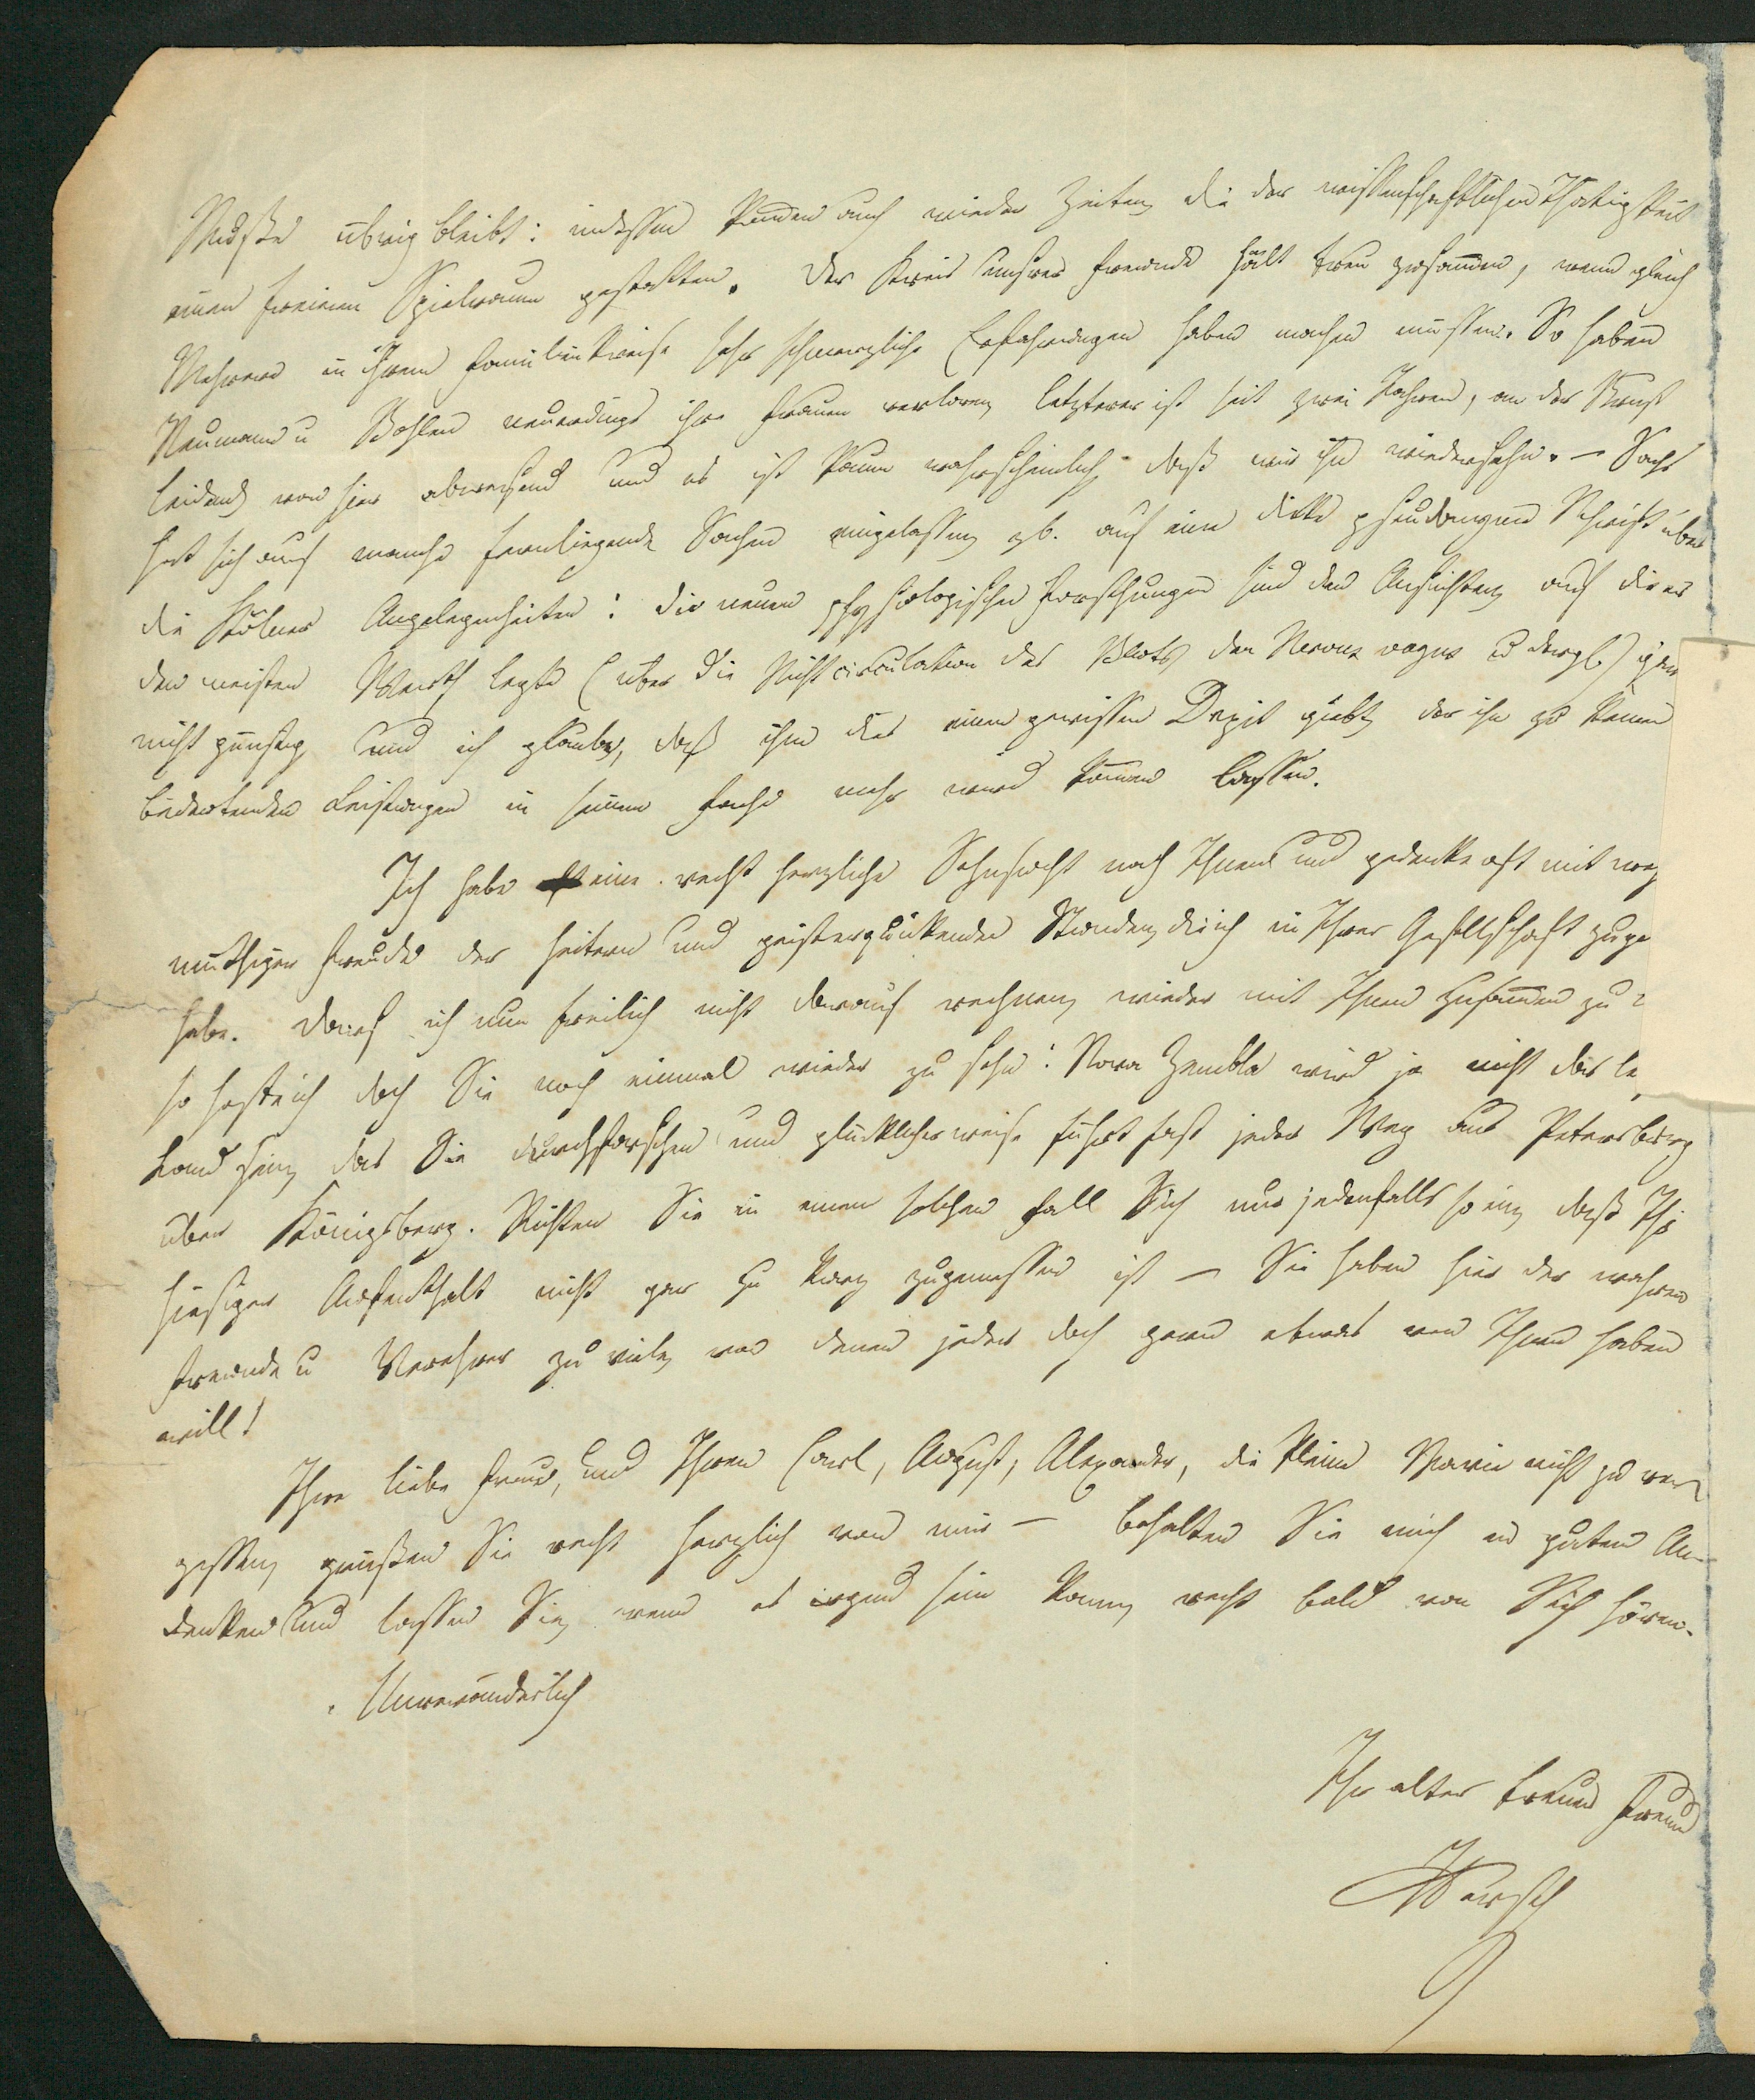 Muße übrig bleibt: indessen kommen auch wieder Zeiten die der wissenschaftlichen Thätigkeit
einen freieren Spielraum gestatten. Der Kreis unsrer Freunde hält treu zusammen, wenn gleich
Mehrere in ihrem Familienkreise sehr schmerzliche Erfahrungen haben machen müssen. So haben
Neumann u Bohlen neuerdings ihre Frauen verloren, letzterer ist seit zwei Jahren, an der Brust
leidend, von hier abwesend und es ist kaum wahrscheinlich daß wir ihn wiedersehn. – Sachs
hat sich auf manche fernliegende Sachen eingelassen, zb. auf eine dicke pseudonyme Schrift über
die Kölner Angelegenheiten: die neuen physiologischen Forschungen sind den Ansichten, auf die er
den meisten Werth legte (über die Nichtcirculation des Bluts, den Nervus vagus u dergl)
nicht günstig und ich glaube, daß ihm dies einen gewissen Depit giebt, der ihn zu keinen
bedeutenden Leistungen in seinem Fache mehr wird kommen lassen.
Ich habe eine recht herzliche Sehnsucht nach Ihnen und gedenke oft mit weh
müthiger Freude der heitern und geisterquickenden Stunden, die ich in Ihrer Gesellschaft zuge
habe. Darf ich nun freilich nicht darauf rechnen, wieder mit Ihnen zusammen zu
so hoffe ich doch Sie noch einmal wieder zu sehn: Nova Zembla wird ja nicht das le
Land sein, das Sie durchforschen und glücklicherweise führt fast jeder Weg aus Petersburg
über Königsberg. Richten Sie in einem solchen Fall Sich nur jedenfalls so ein, daß Ihr
hiesiger Aufenthalt nicht gar zu karg zugemessen ist – Sie haben hier der wahren
Freunde u Verehrer zu viele, von denen jeder doch gern etwas von Ihnen haben
will!
Ihre liebe Frau, und Ihren Carl, August, Alexander, die kleine Marie nicht zu ver
gessen, grüßen Sie recht herzlich von mir – behalten Sie mich in gutem An-
denken und lassen Sie, wenn es irgend sein kann, recht bald von Sich hören.
Unveränderlich
Ihr alter treuer Freund